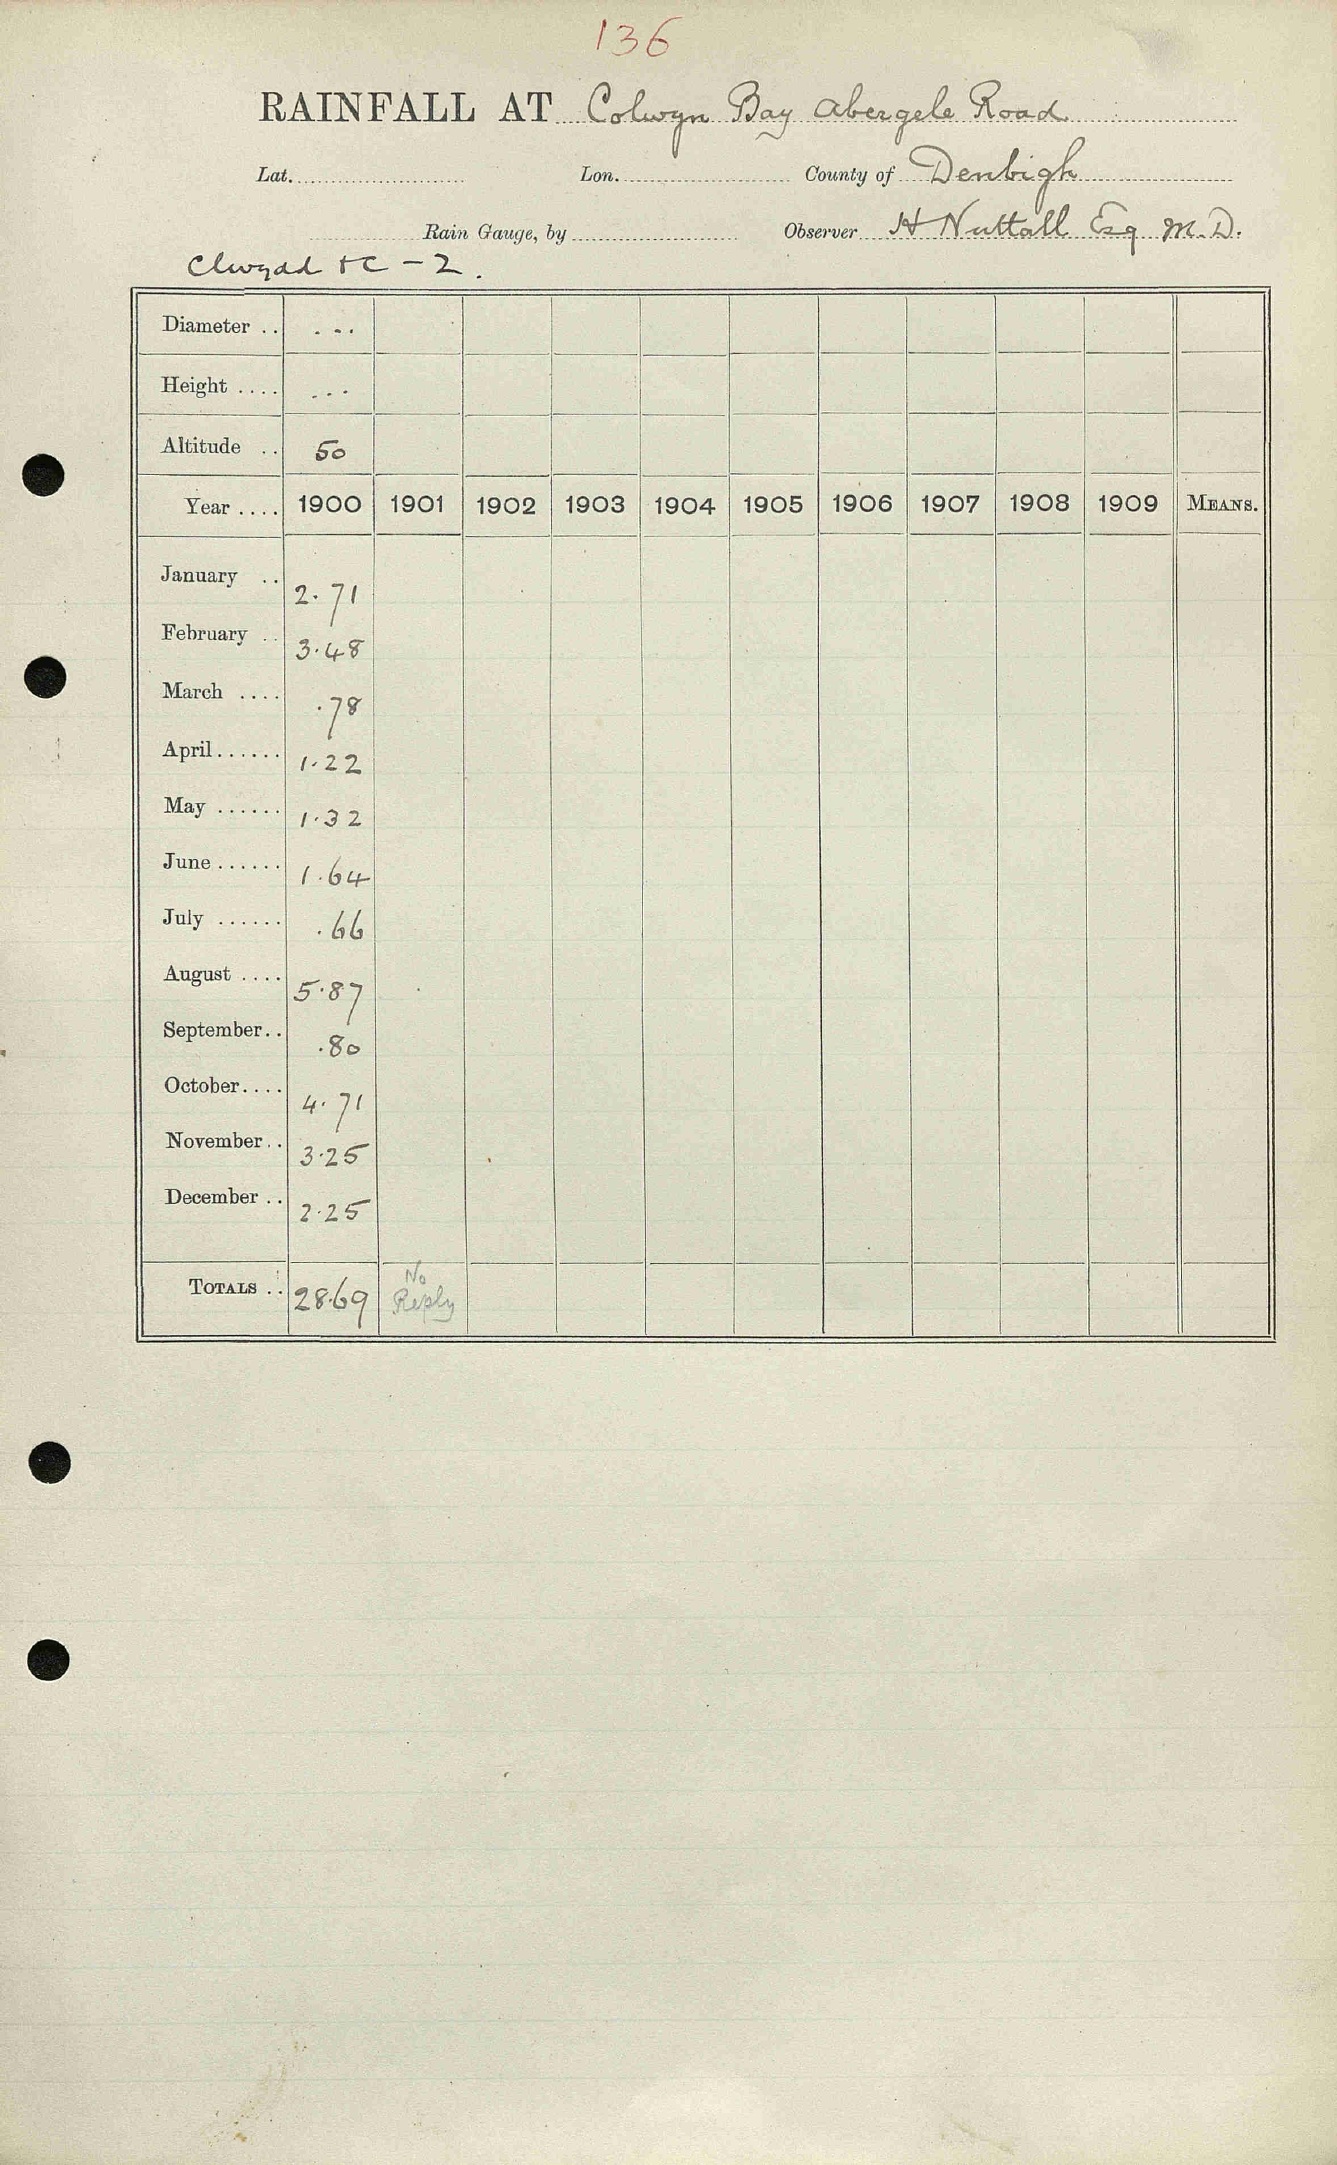 136
RAINFALL AT Colwyn Bay Abergele Road
Lat. Lon. County of Denbigh
Rain Gauge, by Observer H Nuttall Esq M.D.
Clwydd &c - 2.
Diameter .. ...
Height .... ...
Altitude .. 50
Year .... 1900 1901 1902 1903 1904 1905 1906 1907 1908 1909 MEANS.
January .. 2.71
February .. 3.48
March .... .78
April...... 1.22
May ...... 1.32
June...... 1.64
July ...... .66
August .... 5.87
September.. .80
October.... 4.71
November.. 3.25
December .. 2.25
TOTALS .. 28.69 No Reply